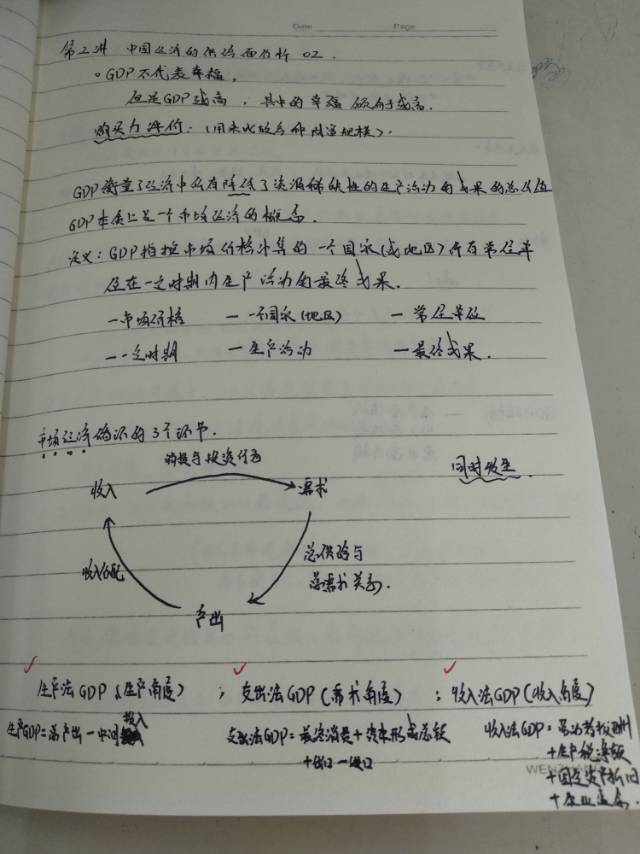 Date    Page
第二讲 中国经济的供给面分析 02.
。GDP不代表幸福,
但是GDP越高,其中的幸福倾向于越高.
购买力平价:(用来比较各币财富规模).
GDP衡量了经济中所有降低了资源稀缺性的生产活动的成果的总价值
GDP本质上是一个市场经济的概念.
定义:GDP指按市场价格计算的一个国家(或地区)所有常住单
位在一定时期内生产活动的最终成果.
—市场价格 — 一个国家(地区) — 常住单位
— 一定时期 — 生产活动 — 最终成果.
市场经济循环的3个环节.
消费与投资行为
收入 需求 同时发生
收入分配 总供给与
总需求关系.
产出
生产法GDP(生产角度) ; 支出法GDP(需求角度) ; 收入法GDP(收入角度)
生产GDP=总产出-中间投入 支出法GDP=最终消费+资本形成总额 收入法GDP=劳动者报酬
+出口-进口 +生产税净额
+固定资产折旧
+企业盈余.